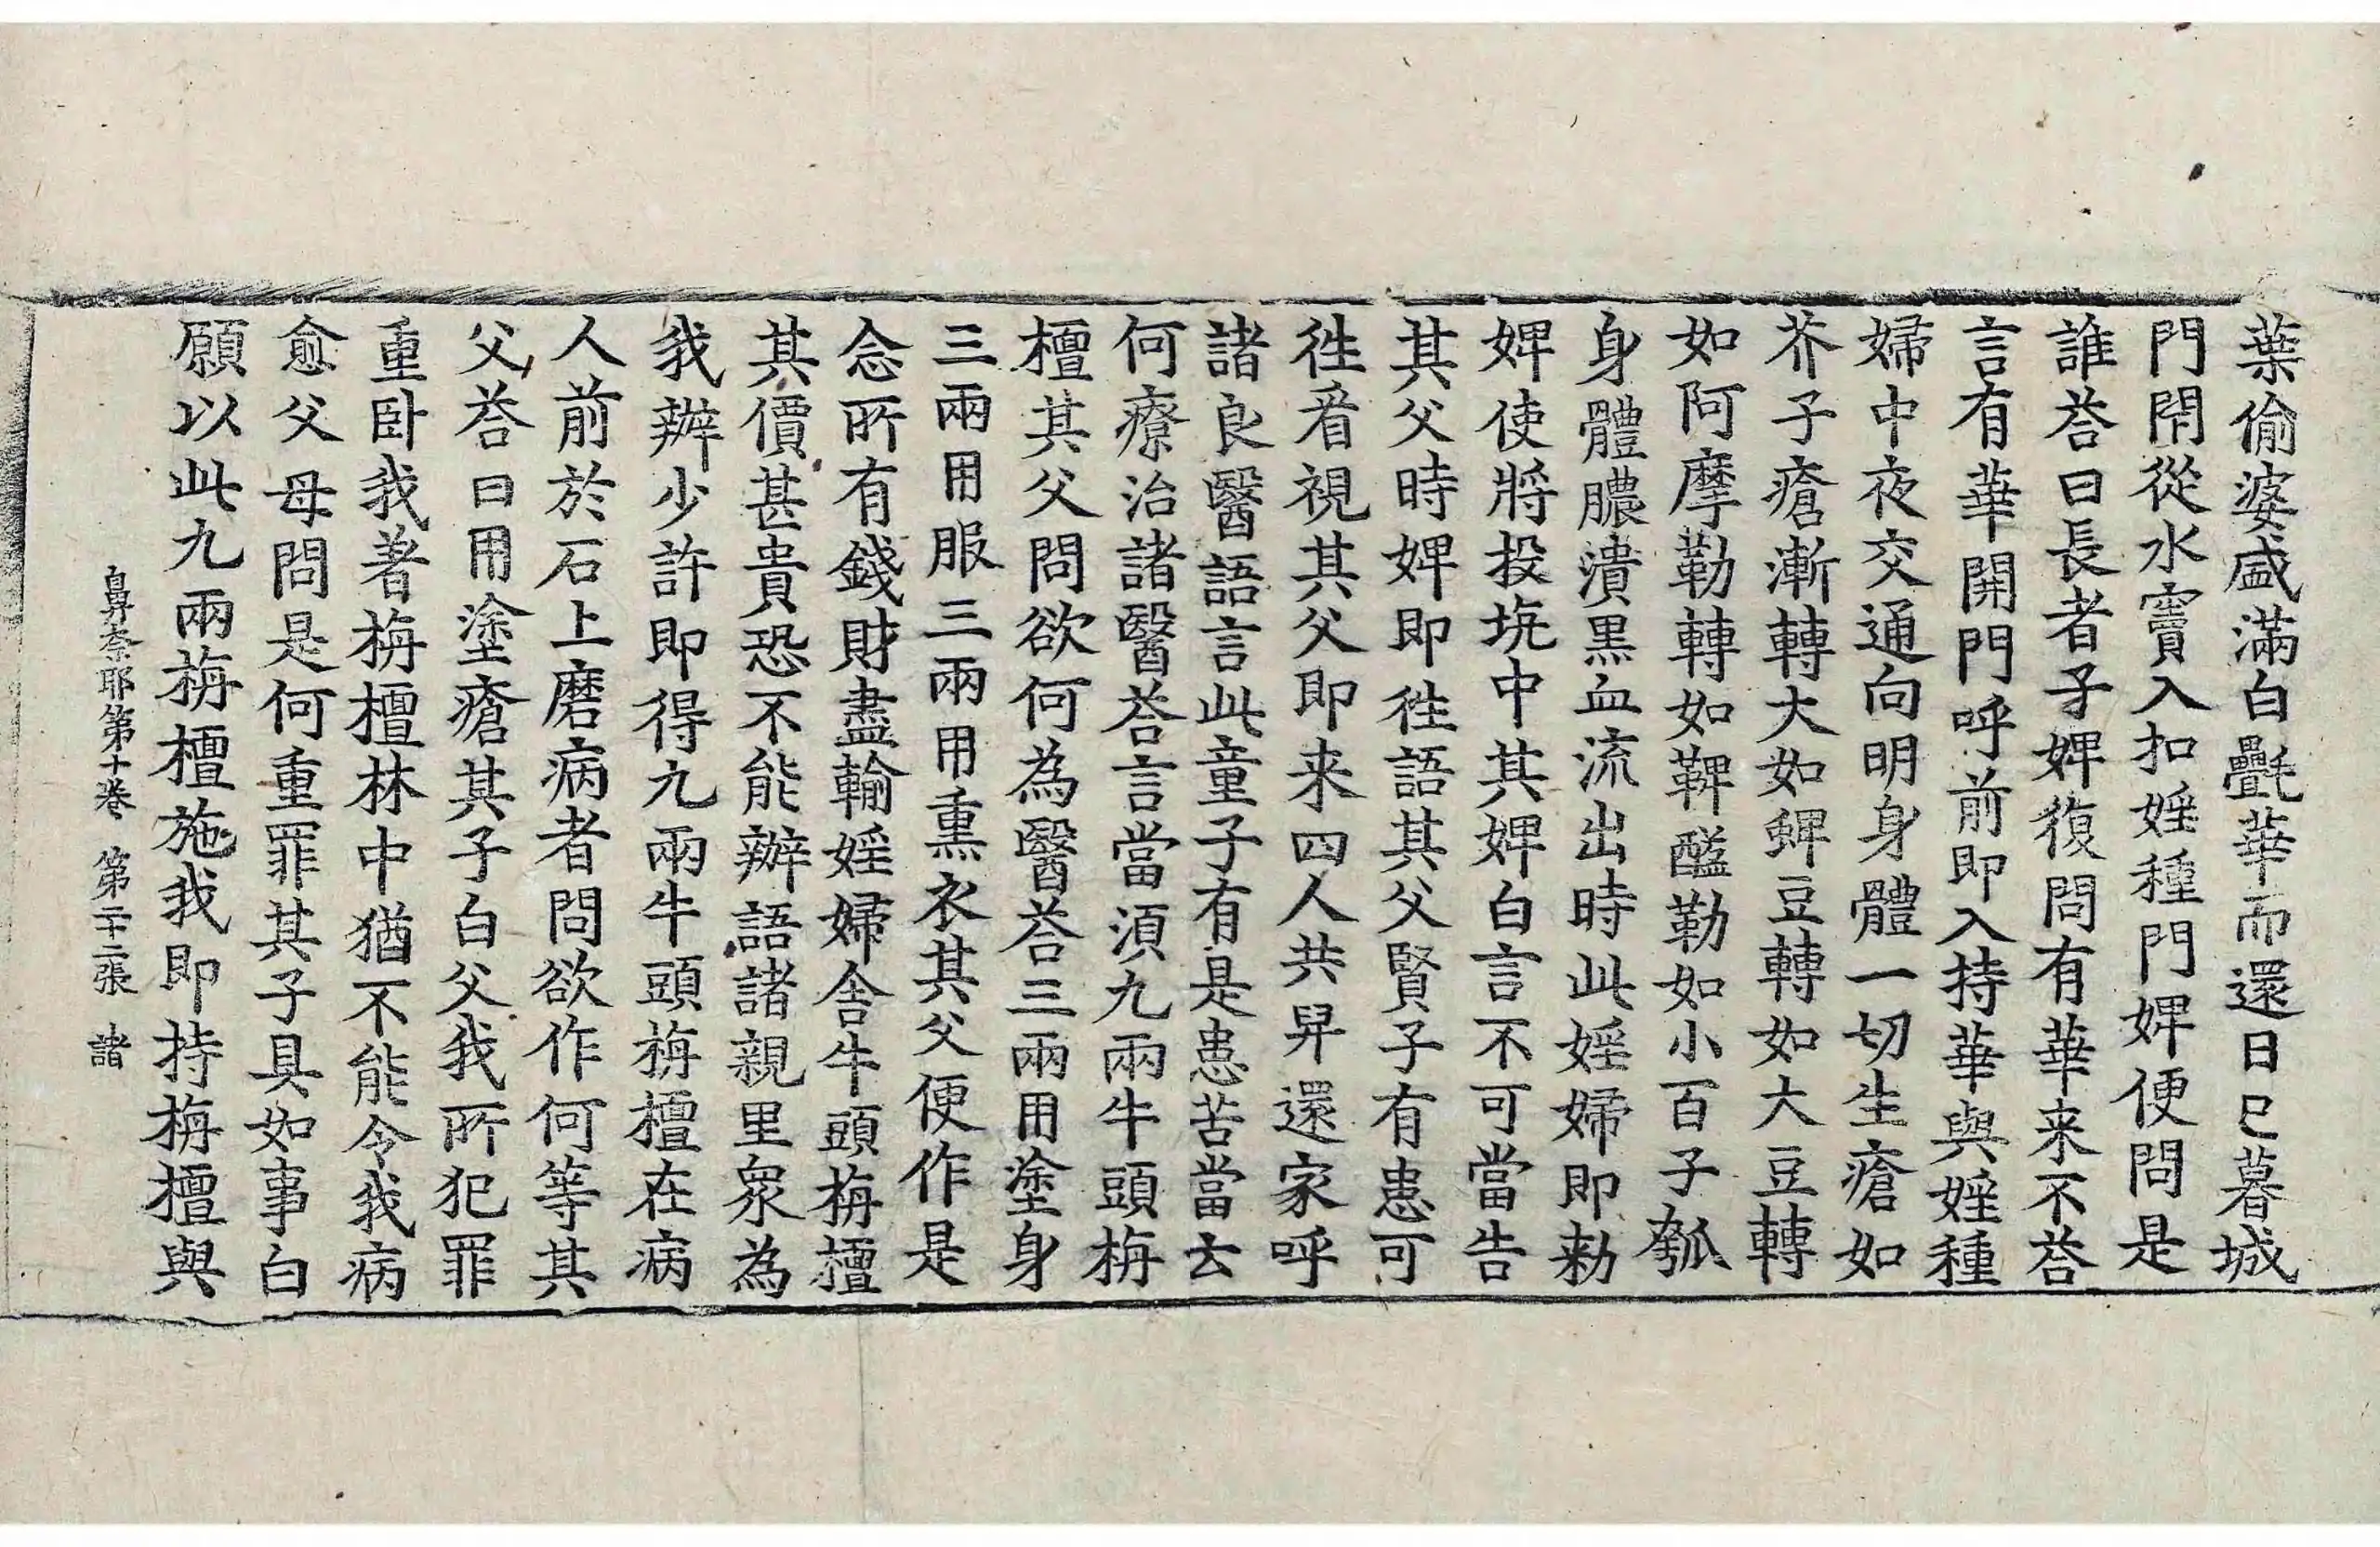 葉偷婆盛滿白㲲華而還日已暮城
門閇從水竇入扣婬種門婢便問是
誰荅曰長者子婢復問有華来不荅
言有華開門呼前即入持華與婬種
婦中夜交通向明身體一切生瘡如
芥子瘡漸轉大如蜱豆轉如大豆轉
如阿摩勒轉如鞞醯勒如小百子瓠
身體膿潰黒血流出時此婬婦即勑
婢使將投坑中其婢白言不可當告
其父時婢即徃語其父賢子有患可
徃㸔視其父即来四人共舁還家呼
諸良醫語言此童子有是患苦當云
何療治諸醫荅言當湏九兩牛頭栴
檀其父問欲何為醫荅三兩用塗身
三兩用服三兩用熏衣其父便作是
念所有錢財盡輸婬婦舎牛頭栴檀
其價甚貴恐不能辦語諸親里衆為
我辦少許即得九兩牛頭栴檀在病
人前於石上磨病者問欲作何等其
父荅曰用塗瘡其子白父我所犯罪
重卧我著栴檀林中猶不能令我病
愈父母問是何重罪其子具如事白
願以此九兩栴檀施我即持栴檀與
鼻奈耶第十卷 第二十二張 諸